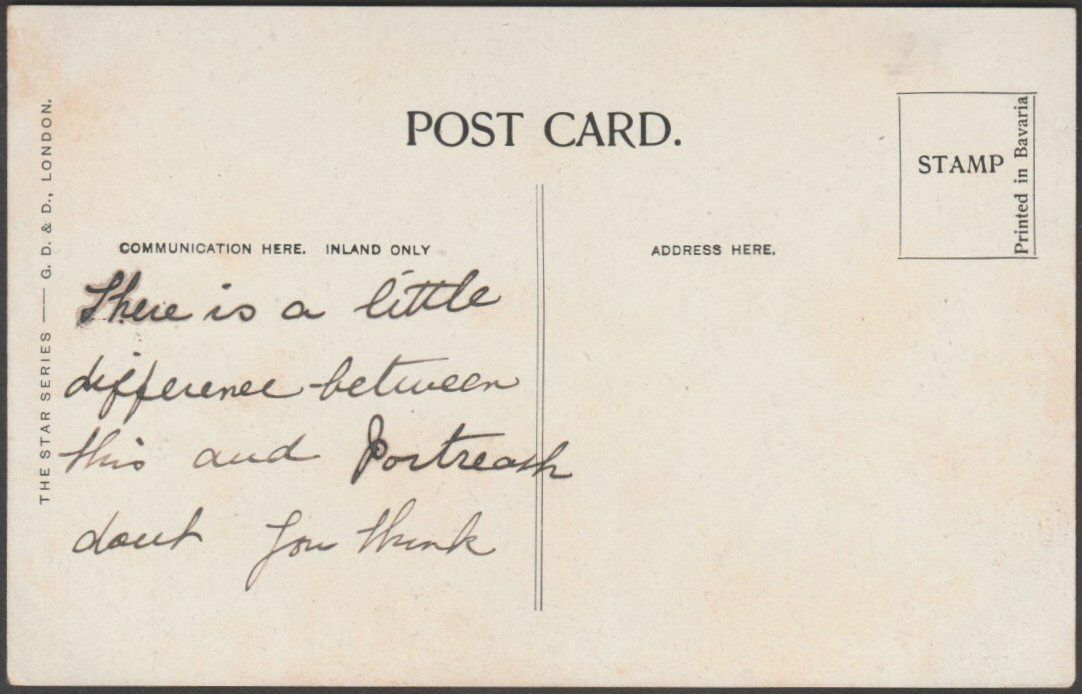 POST CARD.
STAMP
Printed in Bavaria
THE STAR SERIES — G. D. & D., LONDON.
COMMUNICATION HERE. INLAND ONLY
ADDRESS HERE.
There is a little
difference between
this and Portreath
dont you think